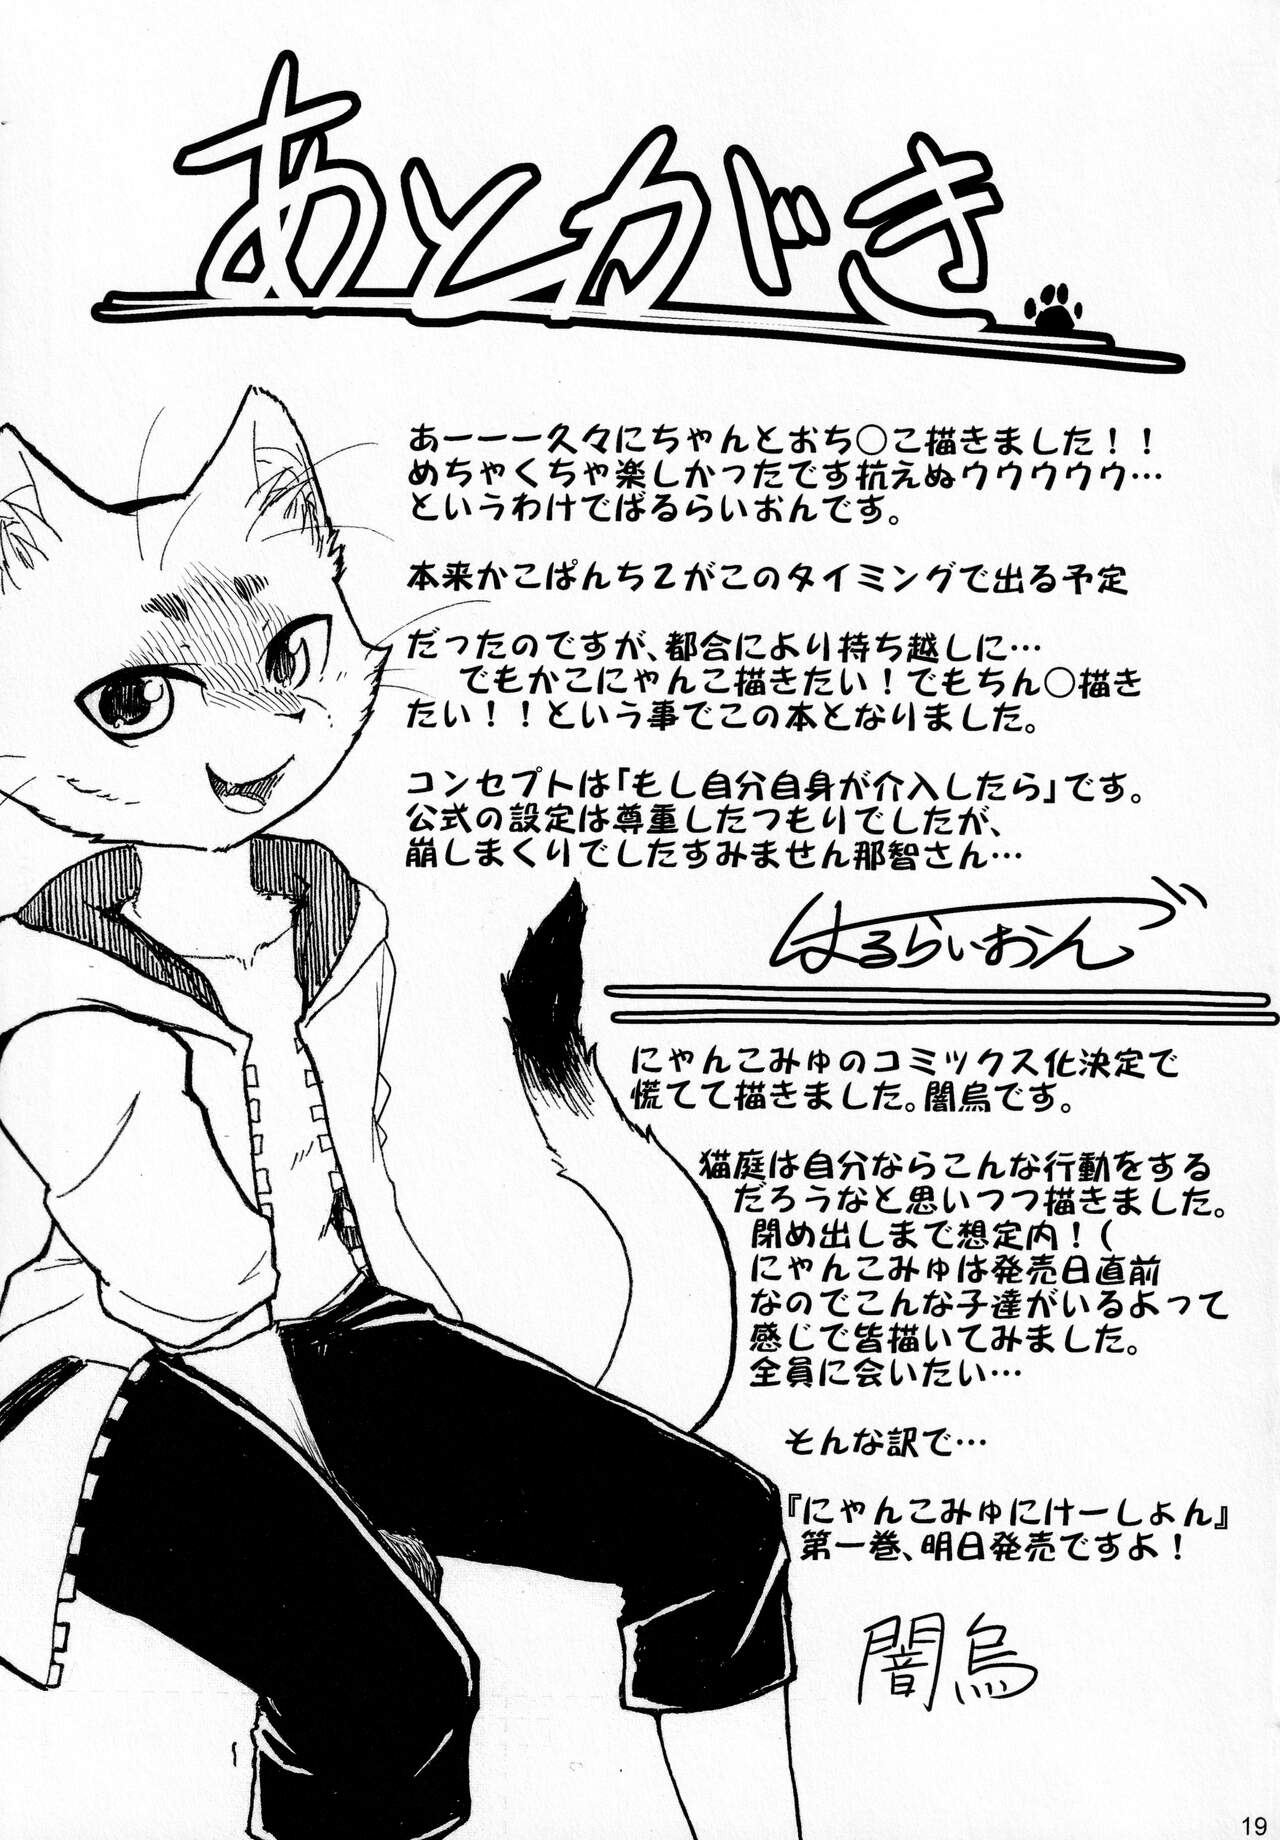 あとがき
あーーー久々にちゃんとおち○こ描きました！！
めちゃくちゃ楽しかったです抗えぬウウウウウ…
というわけでばるらいおんです。
本来かこぱんち2がこのタイミングで出る予定
だったのですが、都合により持ち越しに…
でもかこにゃんこ描きたい！でもちん○描き
たい！！という事でこの本となりました。
コンセプトは「もし自分自身が介入したら」です。
公式の設定は尊重したつもりでしたが、
崩しまくりでしたすみません那智さん…
ばるらいおん
にゃんこみゅのコミックス化決定で
慌てて描きました。闇烏です。
猫庭は自分ならこんな行動をする
だろうなと思いつつ描きました。
閉め出しまで想定内！(
にゃんこみゅは発売日直前
なのでこんな子達がいるよって
感じで皆描いてみました。
全員に会いたい…
そんな訳で…
『にゃんこみゅにけーしょん』
第一巻、明日発売ですよ！
闇烏
19